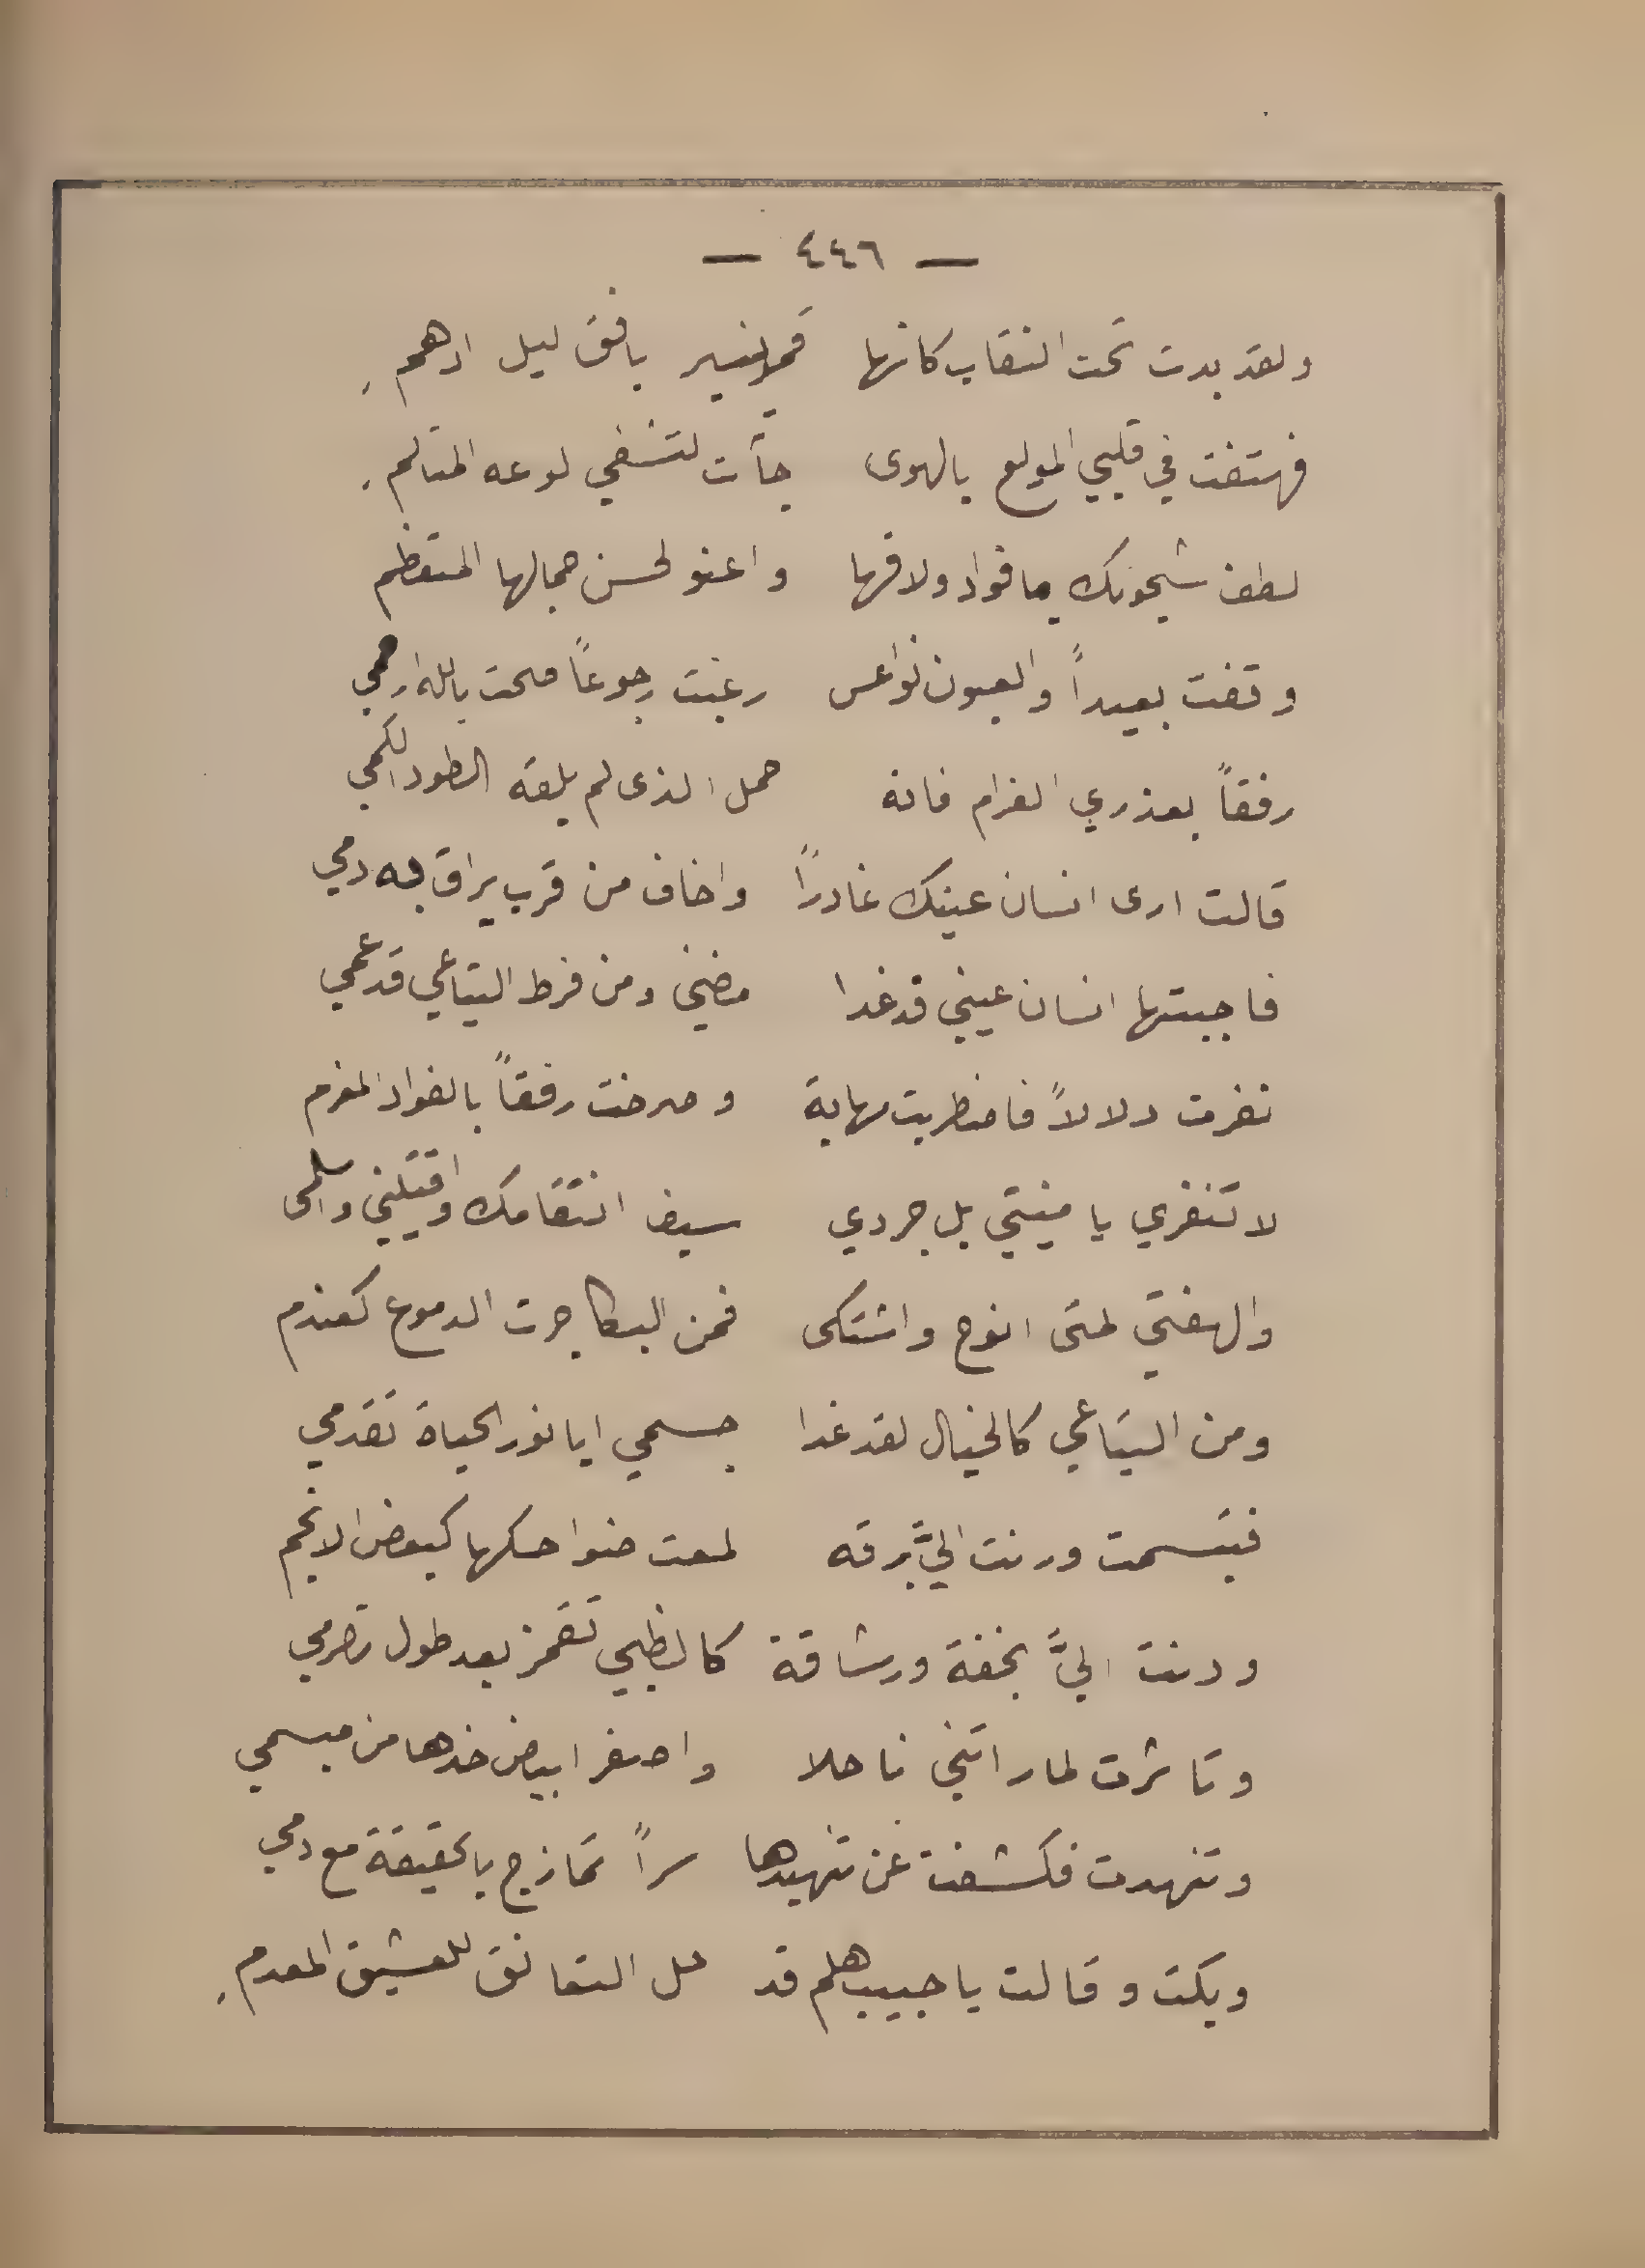 — ٤٤٦ —
ولقد بدت تحت النقاب كانها قمر ينير بافق ليل ادهم
فهتفت في قلبي المولع بالهوى جأت لتشفي لوعه المتألم
لطف شجونك يا فواد ولاقها واعنو لحسن جمالها المتعظم
وقفت بعيداً والعيون نواعس رغبت رجوعاً صحت بالله ارحمي
رفقاً بعذري الغرام فانه حمل الذى لم يلقه الطود الكمي
قالت ارى انسان عينك غادراً واخاف من قرب يراق به دمي
فاجبتها انسان عيني قد غدا مضنى ومن فرط التياعي قد عمي
نفرت دلالاً فاضطربت مهابة وصرخت رفقاً بالفواد المغرم
لا تنفري يا منيتي بل جردي سيف انتقامك واقتليني واسلمى
والهفتي لمتى انوح واشتكى فمن البكا جرت الدموع كعندم
ومن التياعي كالخيال لقد غدا جسمي ايا نور الحياة تقدمي
فتبسمت ورنت اليَّ برقه لمعت ضواحكها كبعض الانجم
ودنت اليَّ بخفة ورشاقة كالظبي تقمز بعد طول تصرمي
وتاثرت لما راتني ناحلا واصفر ابيض خدها من مبسمي
وتنهدت فكشفت عن تنهيدها سراً تمازج بالحقيقة مع دمي
وبكت وقالت يا حبيب هلم قد حل التعانق للعشيق المعدم